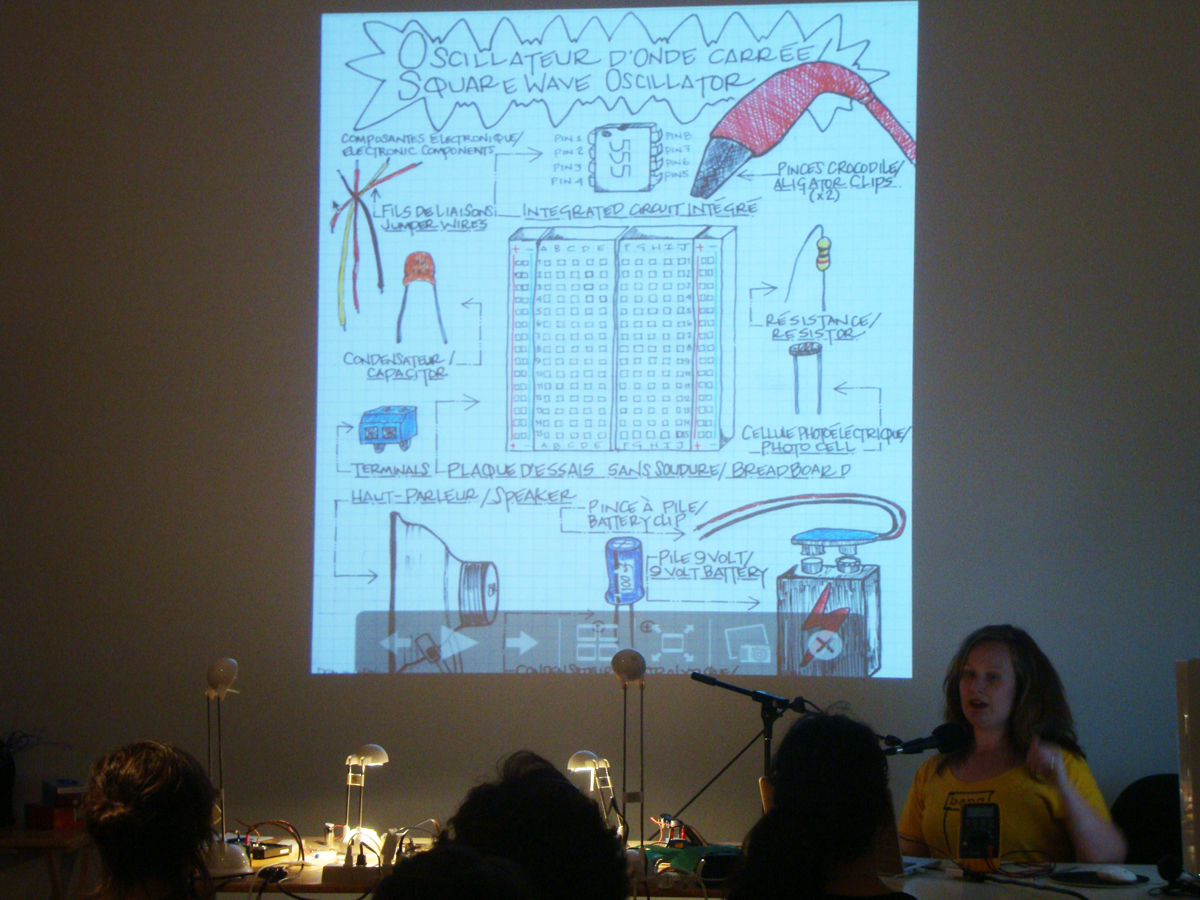 OSCILLATEUR D'ONDE CARRÉE/
SQUARE WAVE OSCILLATOR
COMPOSANTES ÉLECTRONIQUE/
ELECTRONIC COMPONENTS
PIN 1
PIN 2
PIN 3
PIN 4
555
PIN 8
PIN 7
PIN 6
PIN 5
PINCES CROCODILE/
ALIGATOR CLIPS
(x2)
FILS DE LIAISONS
JUMPER WIRES
INTEGRATED CIRCUIT INTÉGRÉ
+ - A B C D E F G H I J + -
RÉSISTANCE/
RESISTOR
CONDENSATEUR/
CAPACITOR
CELLULE PHOTOÉLECTRIQUE/
PHOTO CELL
+ - A B C D E F G H I J + -
TERMINALS
PLAQUE D'ESSAIS SANS SOUDURE/BREADBOARD
HAUT-PARLEUR/SPEAKER
PINCE À PILE/
BATTERY CLIP
PILE 9 VOLT/
9 VOLT BATTERY
bang